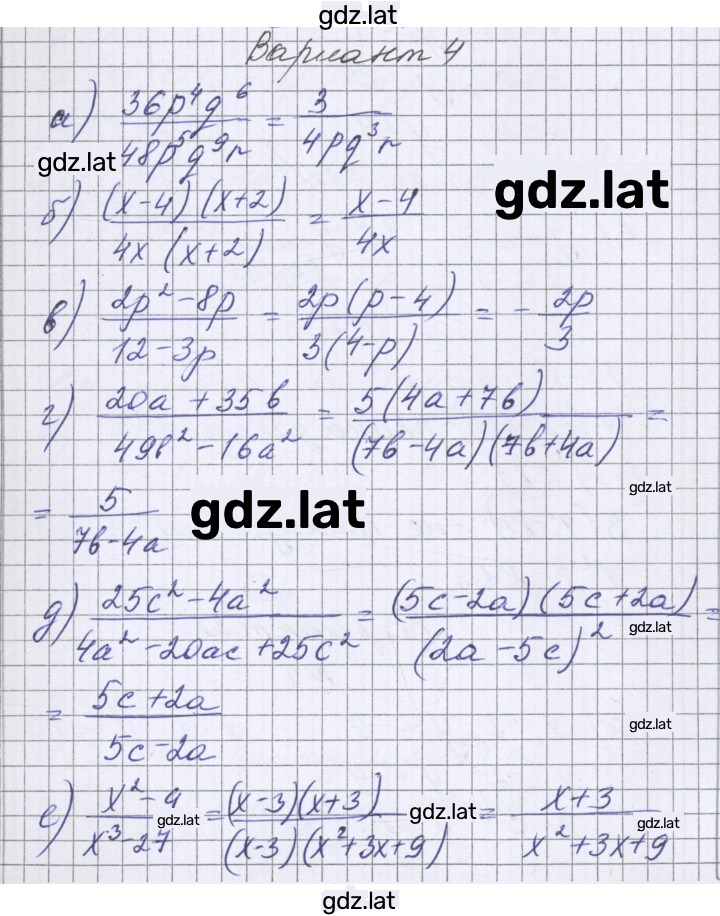 gdz.lat
Вариант 4
а) 36p⁴q⁶ / 48p⁵q⁹r = 3 / 4pq³r
gdz.lat
gdz.lat
б) (x-4)(x+2) / 4x(x+2) = x-4 / 4x
в) 2p²-8p / 12-3p = 2p(p-4) / 3(4-p) = - 2p / 3
г) 20a+35b / 49b²-16a² = 5(4a+7b) / (7b-4a)(7b+4a) =
gdz.lat
= 5 / 7b-4a
gdz.lat
д) 25c²-4a² / 4a²-20ac+25c² = (5c-2a)(5c+2a) / (2a-5c)² =
gdz.lat
= 5c+2a / 5c-2a
gdz.lat
е) x²-9 / x³-27 = (x-3)(x+3) / (x-3)(x²+3x+9) = x+3 / x²+3x+9
gdz.lat
gdz.lat
gdz.lat
gdz.lat